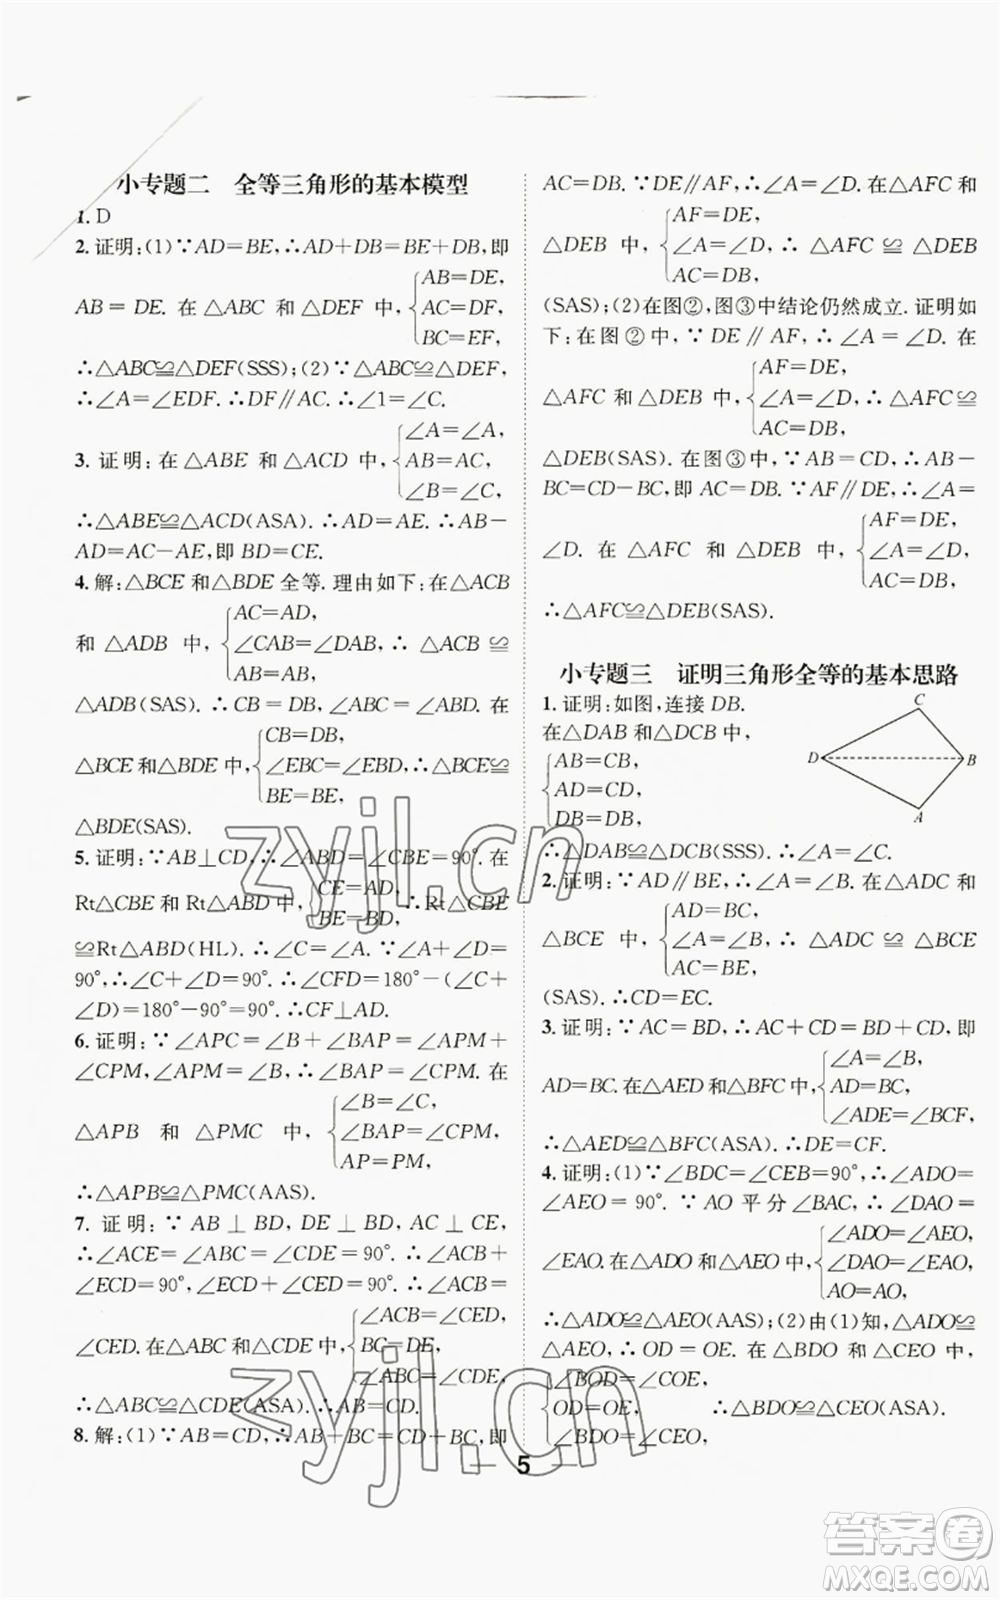 小专题二　全等三角形的基本模型
1.D
2.证明:(1)∵AD=BE,∴AD+DB=BE+DB,即
AB=DE.在△ABC 和△DEF 中,{AB=DE,
AC=DF,
BC=EF,
∴△ABC≌△DEF(SSS);(2)∵△ABC≌△DEF,
∴∠A=∠EDF.∴DF∥AC.∴∠1=∠C.
3.证明:在△ABE 和△ACD 中,{∠A=∠A,
AB=AC,
∠B=∠C,
∴△ABE≌△ACD(ASA).∴AD=AE.∴AB-
AD=AC-AE,即 BD=CE.
4.解:△BCE 和△BDE 全等.理由如下:在△ACB
和△ADB 中,{AC=AD,
∠CAB=∠DAB,∴△ACB≌
AB=AB,
△ADB(SAS).∴CB=DB,∠ABC=∠ABD.在
△BCE 和△BDE 中,{CB=DB,
∠EBC=∠EBD,∴△BCE≌
BE=BE,
△BDE(SAS).
5.证明:∵AB⊥CD,∴∠ABD=∠CBE=90°.在
Rt△CBE 和 Rt△ABD 中,{CE=AD,
BE=BD,∴Rt△CBE
≌Rt△ABD(HL).∴∠C=∠A.∵∠A+∠D=
90°,∴∠C+∠D=90°.∴∠CFD=180°-(∠C+
∠D)=180°-90°=90°.∴CF⊥AD.
6.证明:∵∠APC=∠B+∠BAP=∠APM+
∠CPM,∠APM=∠B,∴∠BAP=∠CPM.在
△APB 和△PMC 中,{∠B=∠C,
∠BAP=∠CPM,
AP=PM,
∴△APB≌△PMC(AAS).
7.证明:∵AB⊥BD,DE⊥BD,AC⊥CE,
∴∠ACE=∠ABC=∠CDE=90°.∴∠ACB+
∠ECD=90°,∠ECD+∠CED=90°.∴∠ACB=
∠CED.在△ABC 和△CDE 中,{∠ACB=∠CED,
BC=DE,
∠ABC=∠CDE,
∴△ABC≌△CDE(ASA).∴AB=CD.
8.解:(1)∵AB=CD,∴AB+BC=CD+BC,即
AC=DB.∵DE∥AF,∴∠A=∠D.在△AFC 和
△DEB 中,{AF=DE,
∠A=∠D,∴△AFC≌△DEB
AC=DB,
(SAS);(2)在图②,图③中结论仍然成立.证明如
下:在图②中,∵DE∥AF,∴∠A=∠D.在
△AFC 和△DEB 中,{AF=DE,
∠A=∠D,∴△AFC≌
AC=DB,
△DEB(SAS).在图③中,∵AB=CD,∴AB-
BC=CD-BC,即 AC=DB.∵AF∥DE,∴∠A=
∠D.在△AFC 和△DEB 中,{AF=DE,
∠A=∠D,
AC=DB,
∴△AFC≌△DEB(SAS).
小专题三　证明三角形全等的基本思路
1.证明:如图,连接 DB.
在△DAB 和△DCB 中,
{AB=CB,
AD=CD,
DB=DB,
C
D
B
A
∴△DAB≌△DCB(SSS).∴∠A=∠C.
2.证明:∵AD∥BE,∴∠A=∠B.在△ADC 和
△BCE 中,{AD=BC,
∠A=∠B,∴△ADC≌△BCE
AC=BE,
(SAS).∴CD=EC.
3.证明:∵AC=BD,∴AC+CD=BD+CD,即
AD=BC.在△AED 和△BFC 中,{∠A=∠B,
AD=BC,
∠ADE=∠BCF,
∴△AED≌△BFC(ASA).∴DE=CF.
4.证明:(1)∵∠BDC=∠CEB=90°,∴∠ADO=
∠AEO=90°.∵AO 平分∠BAC,∴∠DAO=
∠EAO.在△ADO 和△AEO 中,{∠ADO=∠AEO,
∠DAO=∠EAO,
AO=AO,
∴△ADO≌△AEO(AAS);(2)由(1)知,△ADO≌
△AEO,∴OD=OE.在△BDO 和△CEO 中,
{∠BOD=∠COE,
OD=OE,　∴△BDO≌△CEO(ASA).
∠BDO=∠CEO,
— 5 —
zyjl.cn
zyjl.cn
答案卷
MXQE.COM